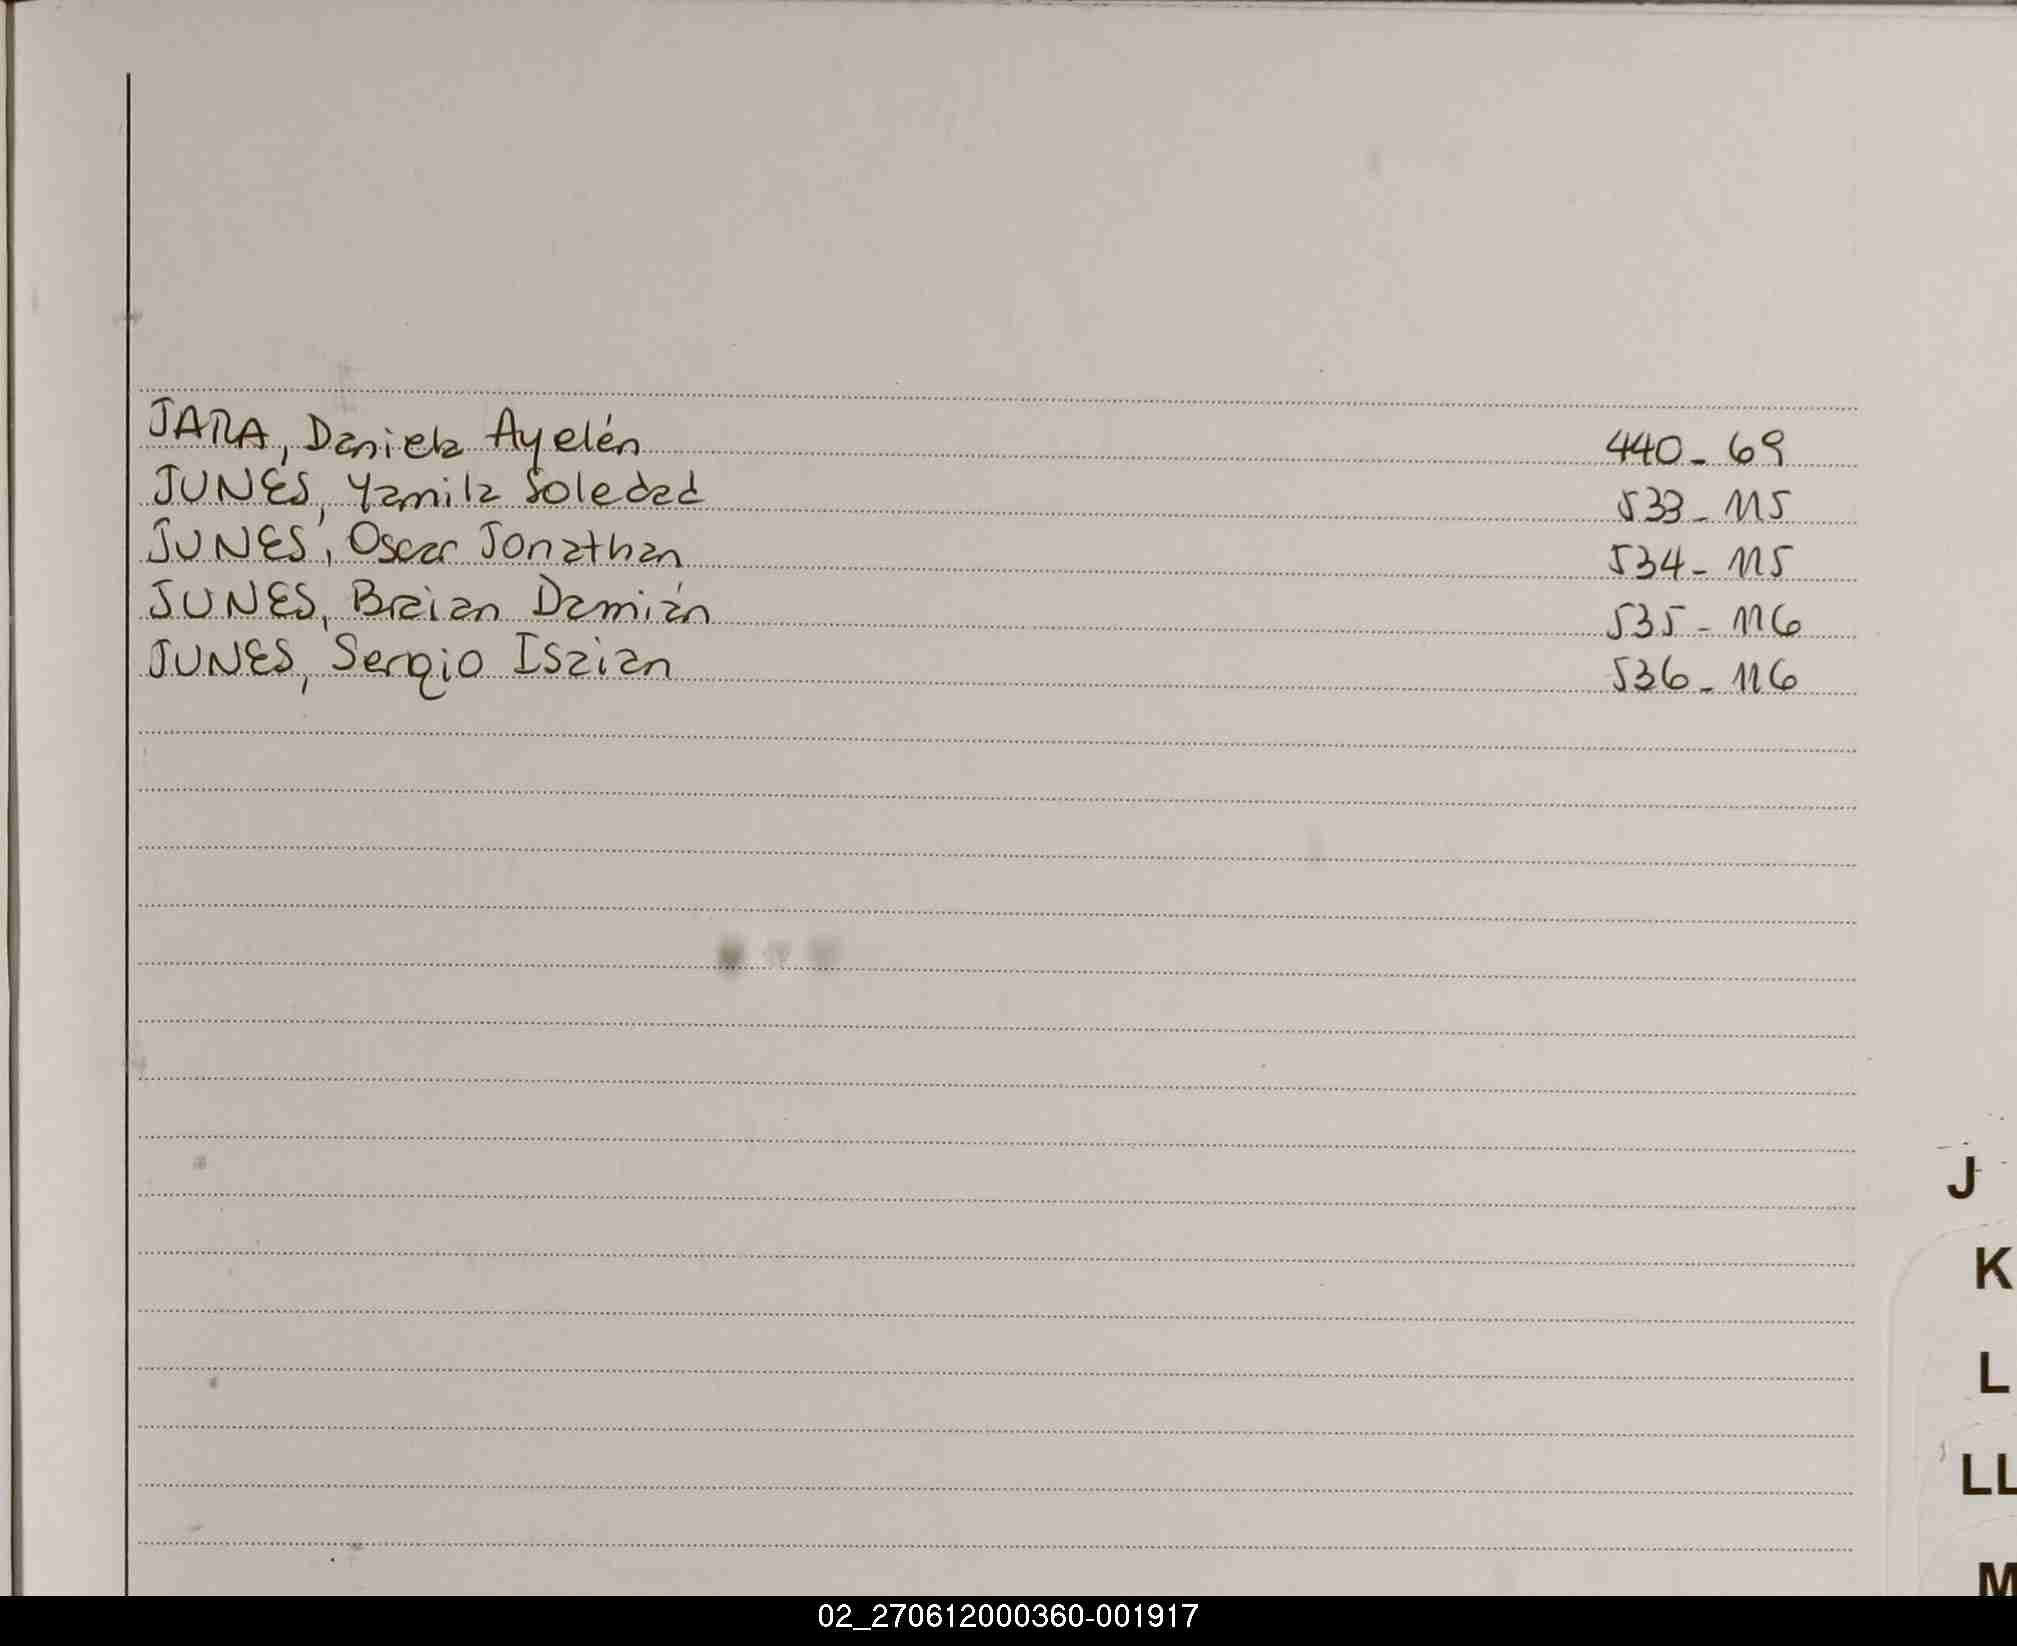 JARA, Daniela Ayelén 440-69
JUNES, Yamila Soledad 533-115
JUNES, Oscar Jonathan 534-115
JUNES, Braian Damián 535-116
JUNES, Sergio Isaian 536-116
J
K
L
LL
M
02_270612000360-001917